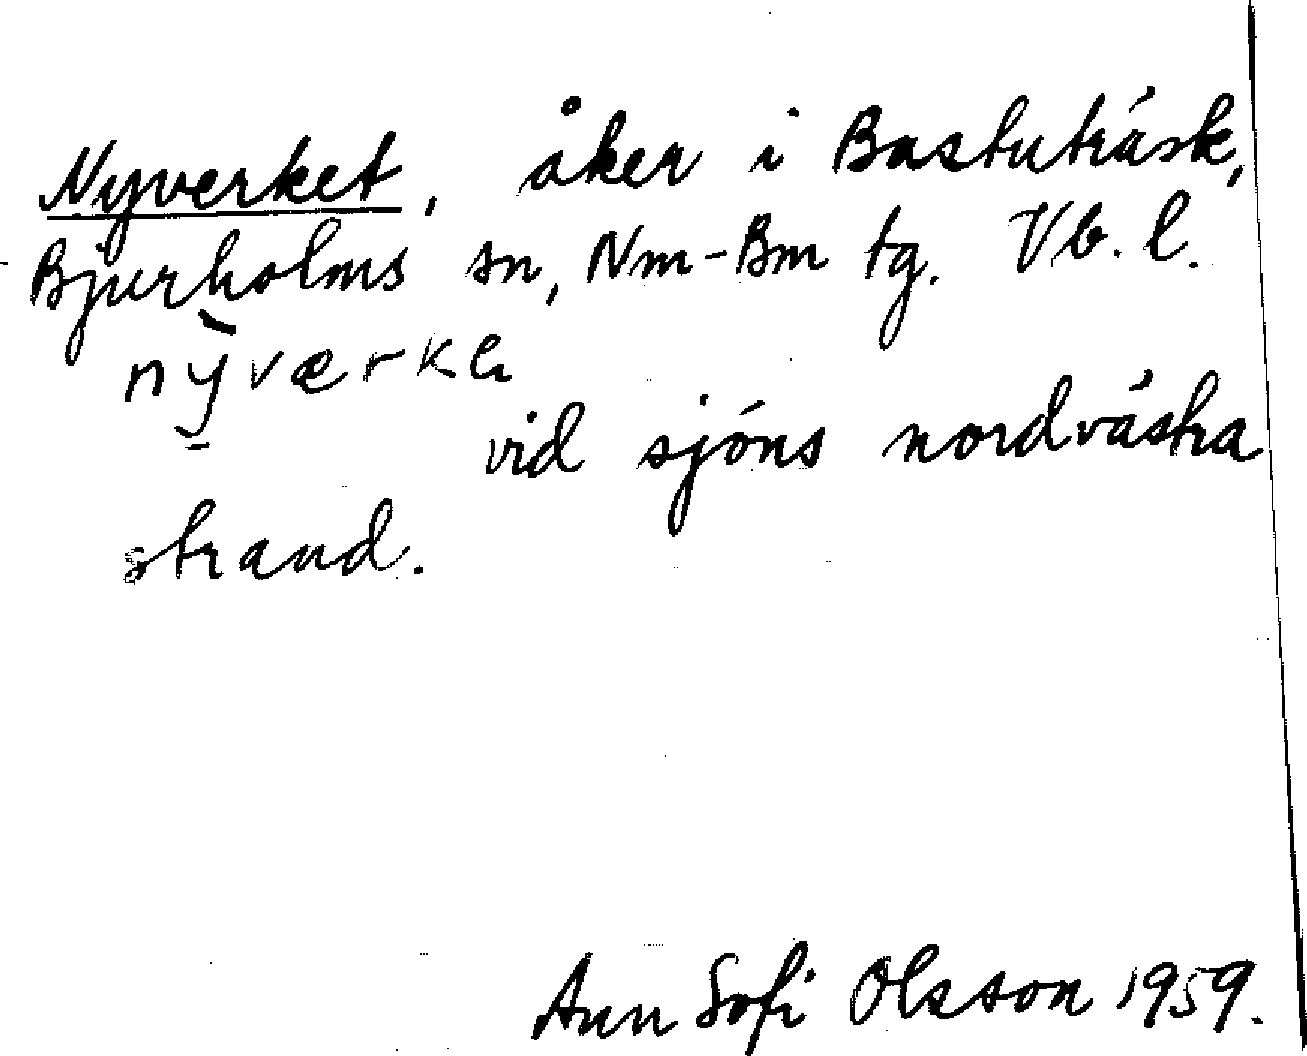 Nyverket, åker i Bastuträsk,
Bjurholms sn, Nm-Bm tg. Vb. l.
nỳværke
vid sjöns nordvästra
strand.
Ann Sofi Olsson 1959.